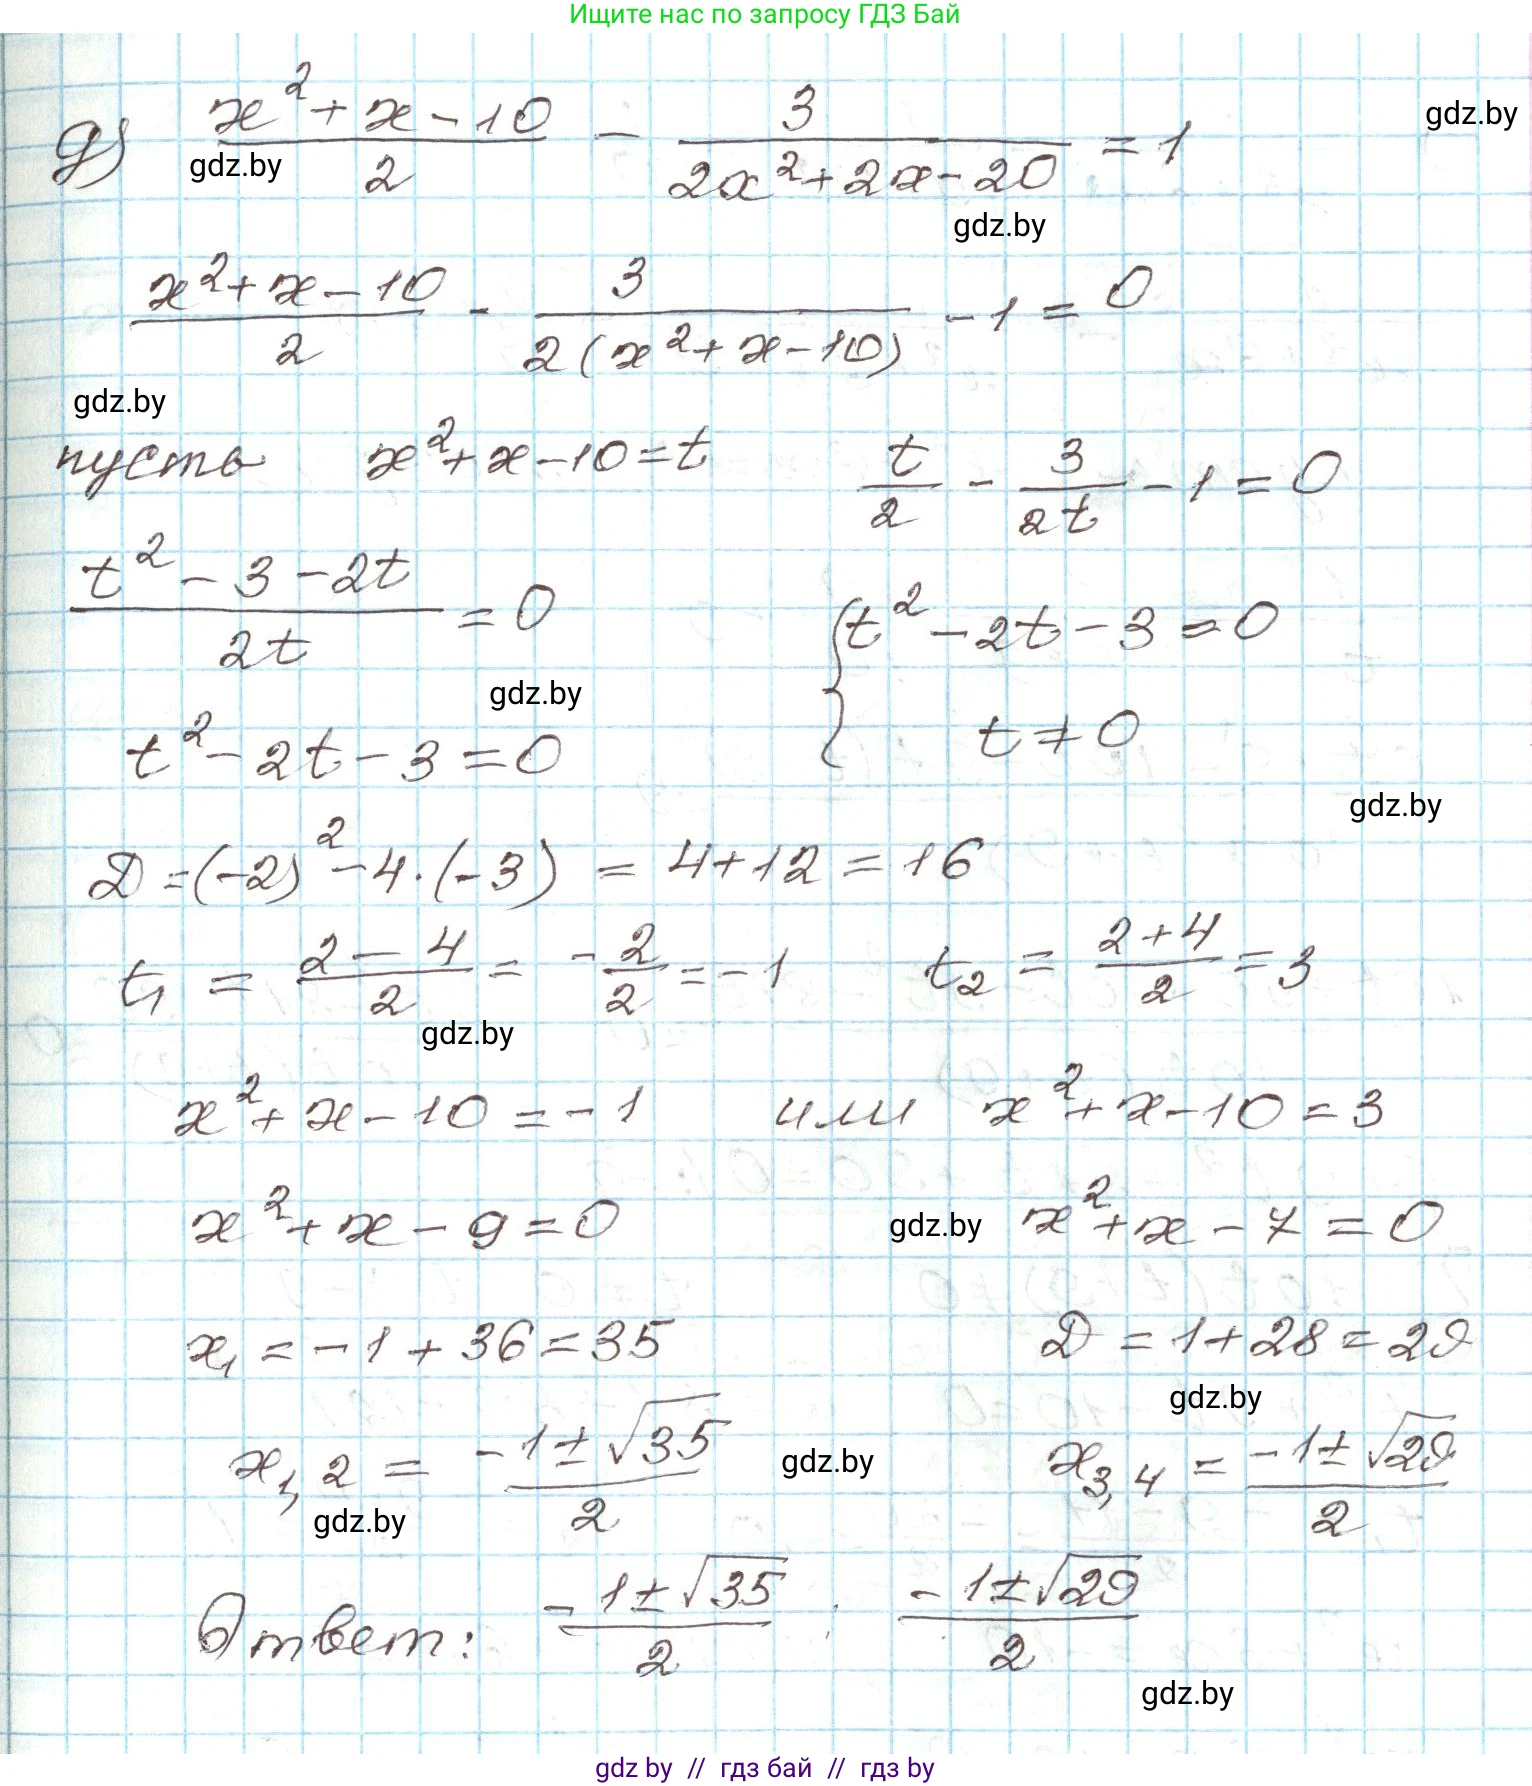 Ищите нас по запросу ГДЗ Бай
д) (x² + x - 10)/2 - 3/(2x² + 2x - 20) = 1
gdz.by
gdz.by
gdz.by
(x² + x - 10)/2 - 3/(2(x² + x - 10)) - 1 = 0
gdz.by
пусть x² + x - 10 = t t/2 - 3/(2t) - 1 = 0
(t² - 3 - 2t)/(2t) = 0 { t² - 2t - 3 = 0
gdz.by
t² - 2t - 3 = 0 t ≠ 0
gdz.by
D = (-2)² - 4·(-3) = 4 + 12 = 16
t₁ = (2 - 4)/2 = -2/2 = -1 t₂ = (2 + 4)/2 = 3
gdz.by
x² + x - 10 = -1 или x² + x - 10 = 3
x² + x - 9 = 0 gdz.by x² + x - 7 = 0
x₁ = -1 + 36 = 35 D = 1 + 28 = 29
gdz.by
x₁,₂ = (-1 ± √35)/2 gdz.by x₃,₄ = (-1 ± √29)/2
gdz.by
Ответ: (-1 ± √35)/2 ; (-1 ± √29)/2
gdz.by
gdz by // гдз бай // гдз by